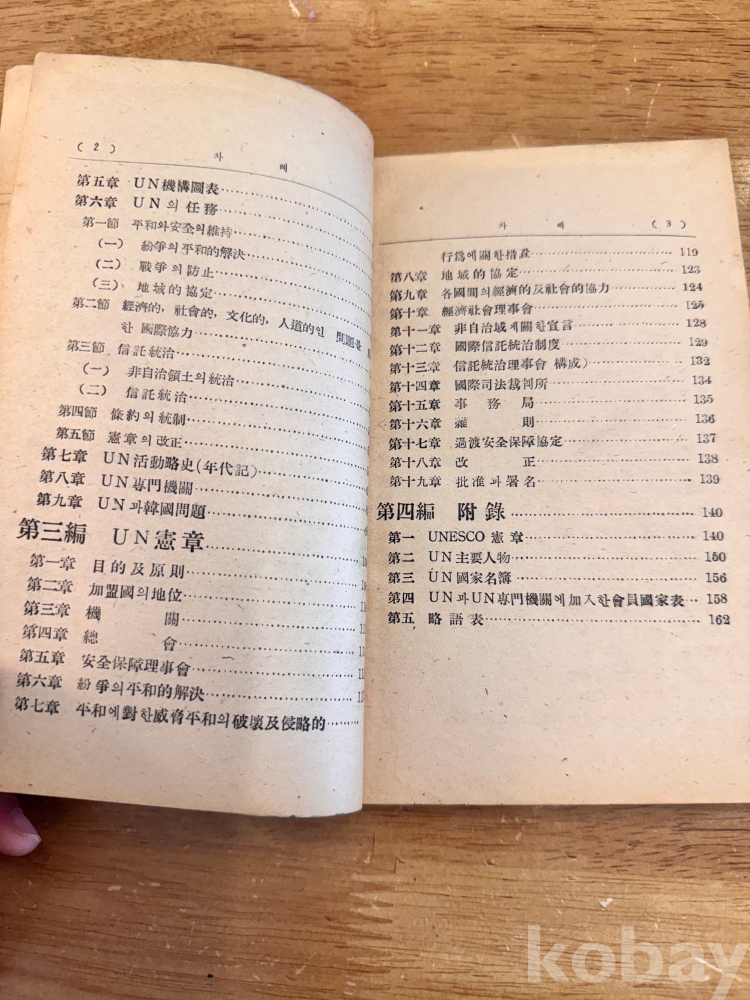 ( 2 )
차 례
第五章 UN機構圖表
第六章 UN의 任務
第一節 平和와安全의維持
(一) 紛爭의平和的解決
(二) 戰爭의防止
(三) 地域的協定
第二節 經濟的, 社會的, 文化的, 人道的인 問題를
한 國際協力
第三節 信託統治
(一) 非自治領土의統治
(二) 信託統治
第四節 條約의統制
第五節 憲章의改正
第七章 UN活動略史(年代記)
第八章 UN專門機關
第九章 UN과韓國問題
第三編 UN憲章
第一章 目的及原則
第二章 加盟國의地位
第三章 機 關
第四章 總 會
第五章 安全保障理事會
第六章 紛爭의平和的解決
第七章 平和에對한威脅平和의破壞及侵略的
차 례
( 3 )
行爲에關한措置 119
第八章 地域的協定 123
第九章 各國間의經濟的及社會的協力 124
第十章 經濟社會理事會 125
第十一章 非自治域에關한宣言 128
第十二章 國際信託統治制度 129
第十三章 信託統治理事會 構成) 132
第十四章 國際司法裁判所 134
第十五章 事 務 局 135
第十六章 雜 則 136
第十七章 過渡安全保障協定 137
第十八章 改 正 138
第十九章 批准과署名 139
第四編 附錄 140
第一 UNESCO憲章 140
第二 UN主要人物 150
第三 UN國家名簿 156
第四 UN과UN專門機關에加入한會員國家表 158
第五 略語表 162
kobay